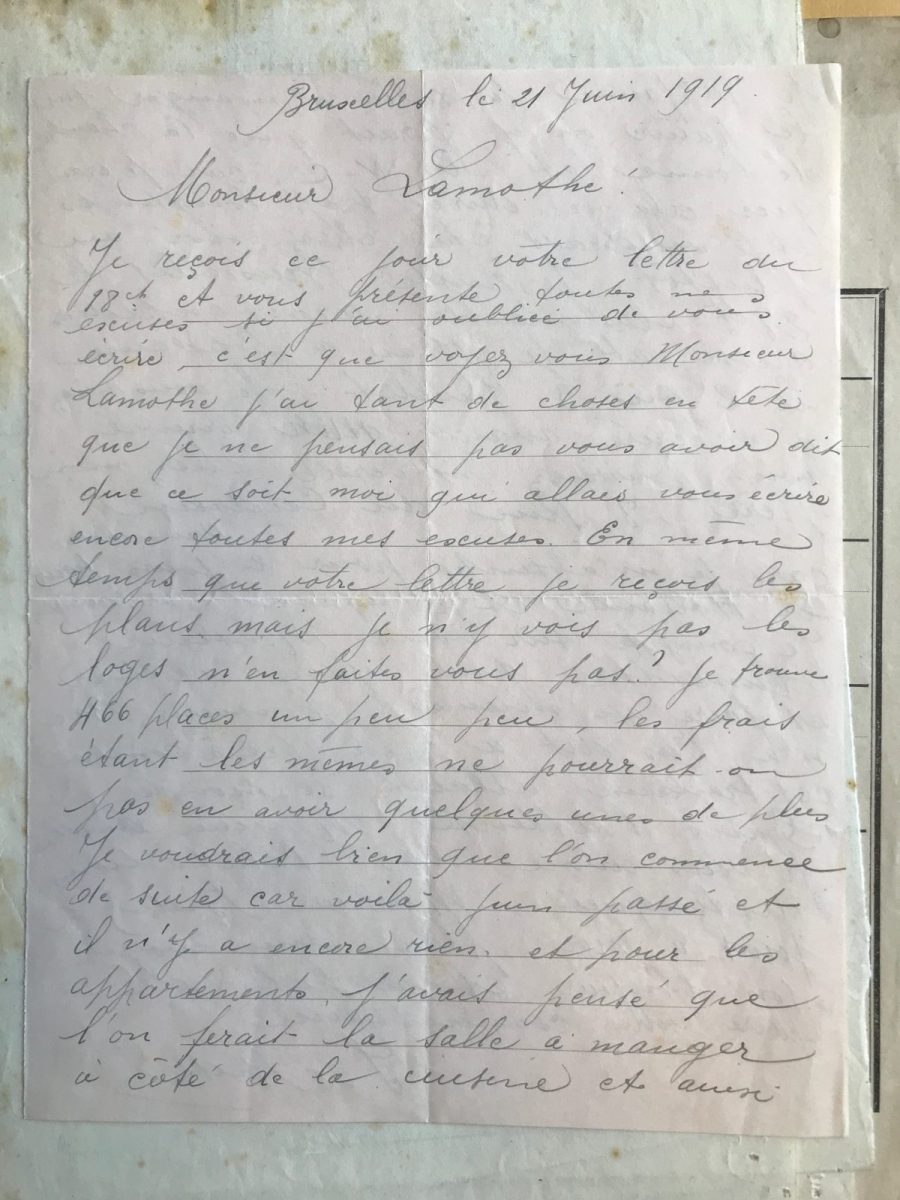 Bruxelles le 21 Juin 1919.
Monsieur Lamothe!
Je reçois ce jour votre lettre du
18ct et vous présente toutes mes
excuses si j'ai oublié de vous
écrire, c'est que voyez vous Monsieur
Lamothe j'ai tant de choses en tête
que je ne pensais pas vous avoir dit
que ce soit moi qui allais vous écrire
encore toutes mes excuses. En même
temps que votre lettre je reçois les
plans mais je n'y vois pas les
loges n'en faites vous pas? je trouve
466 places un peu peu, les frais
étant les mêmes ne pourrait-on
pas en avoir quelques unes de plus
Je voudrais bien que l'on commence
de suite car voilà juin passé et
il n'y a encore rien. et pour les
appartements, j'avais pensé que
l'on ferait la salle à manger
à côté de la cuisine et ainsi